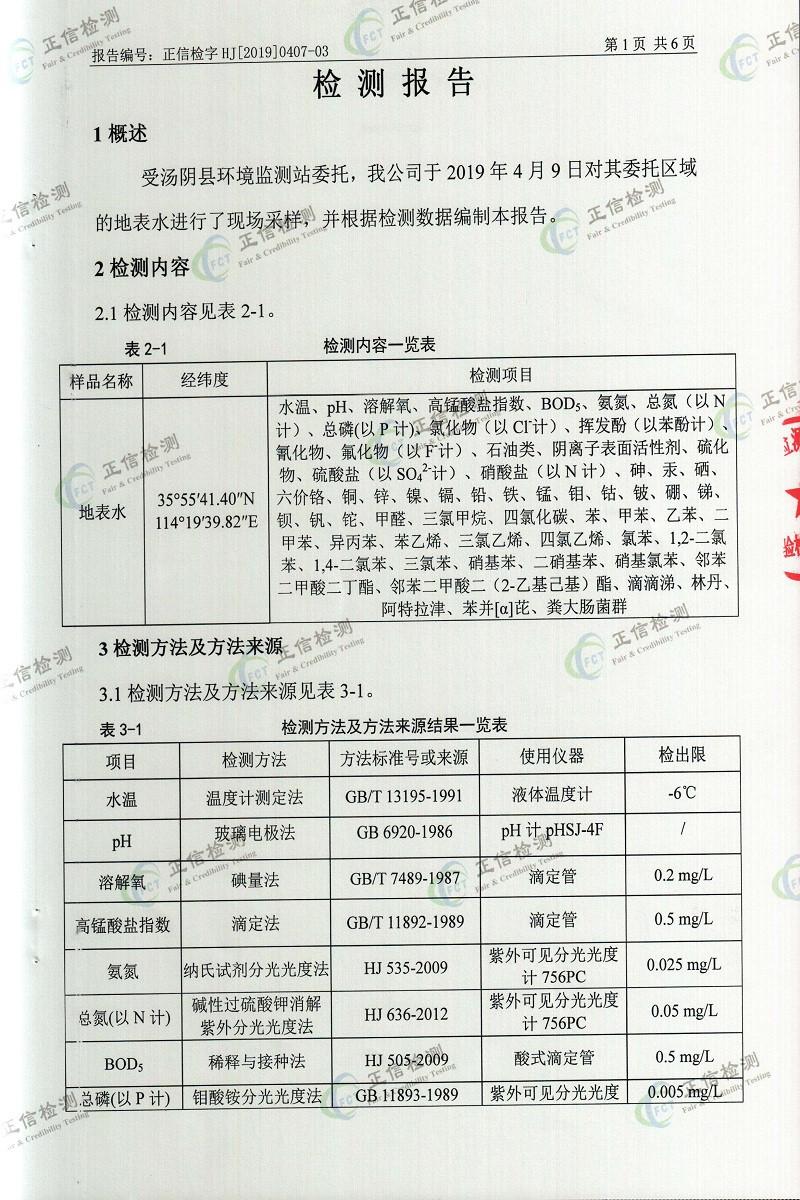 报告编号：正信检字 HJ[2019]0407-03
第 1 页 共 6 页
检 测 报 告
1 概述
受汤阴县环境监测站委托，我公司于 2019 年 4 月 9 日对其委托区域
的地表水进行了现场采样，并根据检测数据编制本报告。
2 检测内容
2.1 检测内容见表 2-1。
表 2-1 检测内容一览表
样品名称 经纬度 检测项目
地表水
35°55′41.40″N
114°19′39.82″E
水温、pH、溶解氧、高锰酸盐指数、BOD₅、氨氮、总氮（以 N
计）、总磷(以 P 计)、氯化物（以 Cl⁻计）、挥发酚（以苯酚计）、
氰化物、氟化物（以 F⁻计）、石油类、阴离子表面活性剂、硫化
物、硫酸盐（以 SO₄²⁻计）、硝酸盐（以 N 计）、砷、汞、硒、
六价铬、铜、锌、镍、镉、铅、铁、锰、钼、钴、铍、硼、锑、
钡、钒、铊、甲醛、三氯甲烷、四氯化碳、苯、甲苯、乙苯、二
甲苯、异丙苯、苯乙烯、三氯乙烯、四氯乙烯、氯苯、1,2-二氯
苯、1,4-二氯苯、三氯苯、硝基苯、二硝基苯、硝基氯苯、邻苯
二甲酸二丁酯、邻苯二甲酸二（2-乙基己基）酯、滴滴涕、林丹、
阿特拉津、苯并[α]芘、粪大肠菌群
3 检测方法及方法来源
3.1 检测方法及方法来源见表 3-1。
表 3-1 检测方法及方法来源结果一览表
项目 检测方法 方法标准号或来源 使用仪器 检出限
水温 温度计测定法 GB/T 13195-1991 液体温度计 -6℃
pH 玻璃电极法 GB 6920-1986 pH 计 pHSJ-4F /
溶解氧 碘量法 GB/T 7489-1987 滴定管 0.2 mg/L
高锰酸盐指数 滴定法 GB/T 11892-1989 滴定管 0.5 mg/L
氨氮 纳氏试剂分光光度法 HJ 535-2009 紫外可见分光光度
计 756PC 0.025 mg/L
总氮(以 N 计) 碱性过硫酸钾消解
紫外分光光度法 HJ 636-2012 紫外可见分光光度
计 756PC 0.05 mg/L
BOD₅ 稀释与接种法 HJ 505-2009 酸式滴定管 0.5 mg/L
总磷(以 P 计) 钼酸铵分光光度法 GB 11893-1989 紫外可见分光光度 0.005 mg/L
正信检测
Fair & Credibility Testing
FCT